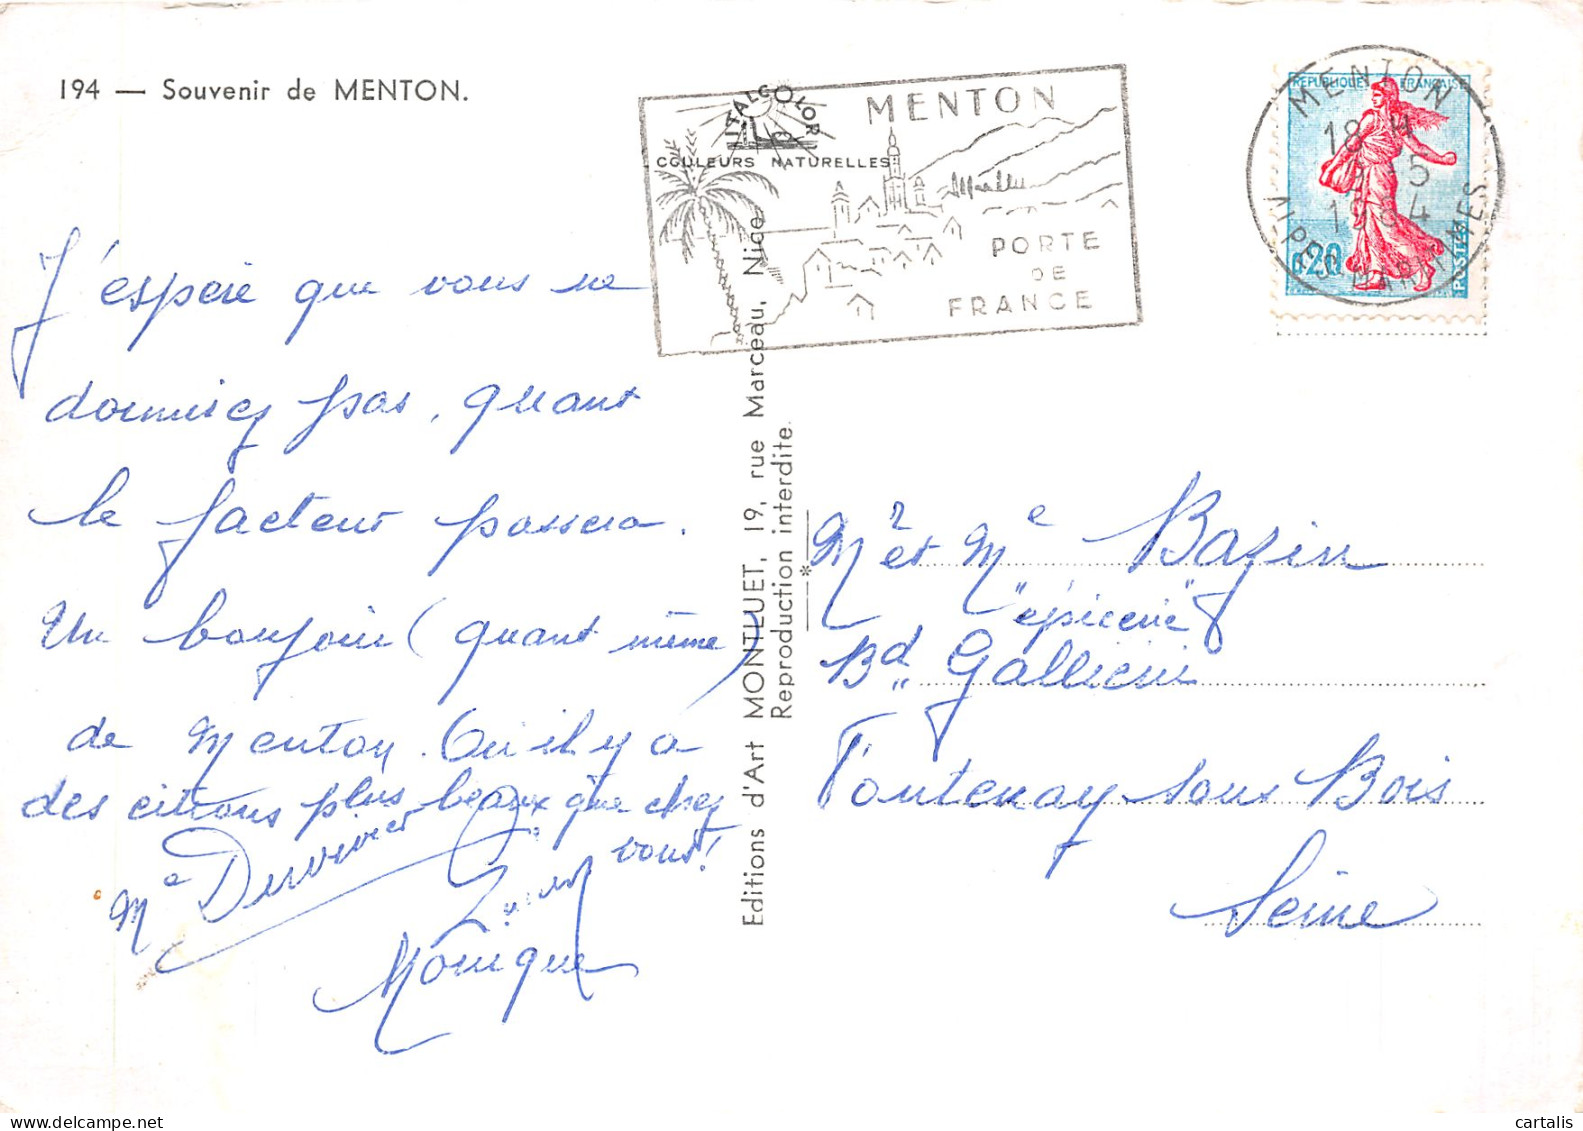 194 — Souvenir de MENTON.
ITALCOLOR
COULEURS NATURELLES
MENTON
PORTE
DE
FRANCE
MENTON
18 H
5
1964
ALPES MARITIMES
REPUBLIQUE FRANÇAISE
0,20
POSTES
J'espère que vous ne
dormirez pas, quant
le facteur passera.
Un bonjour (quant même)
de Menton. Où il y a
des citrons plus beaux que chez
vous!
Me Duvivier
Monique
Editions d'Art MONTLUET, 19, rue Marceau, Nice
Reproduction interdite.
Mr et Me Bazin
"épicerie"
Bd Gallieni
Fontenay sous Bois
Seine
cartalis